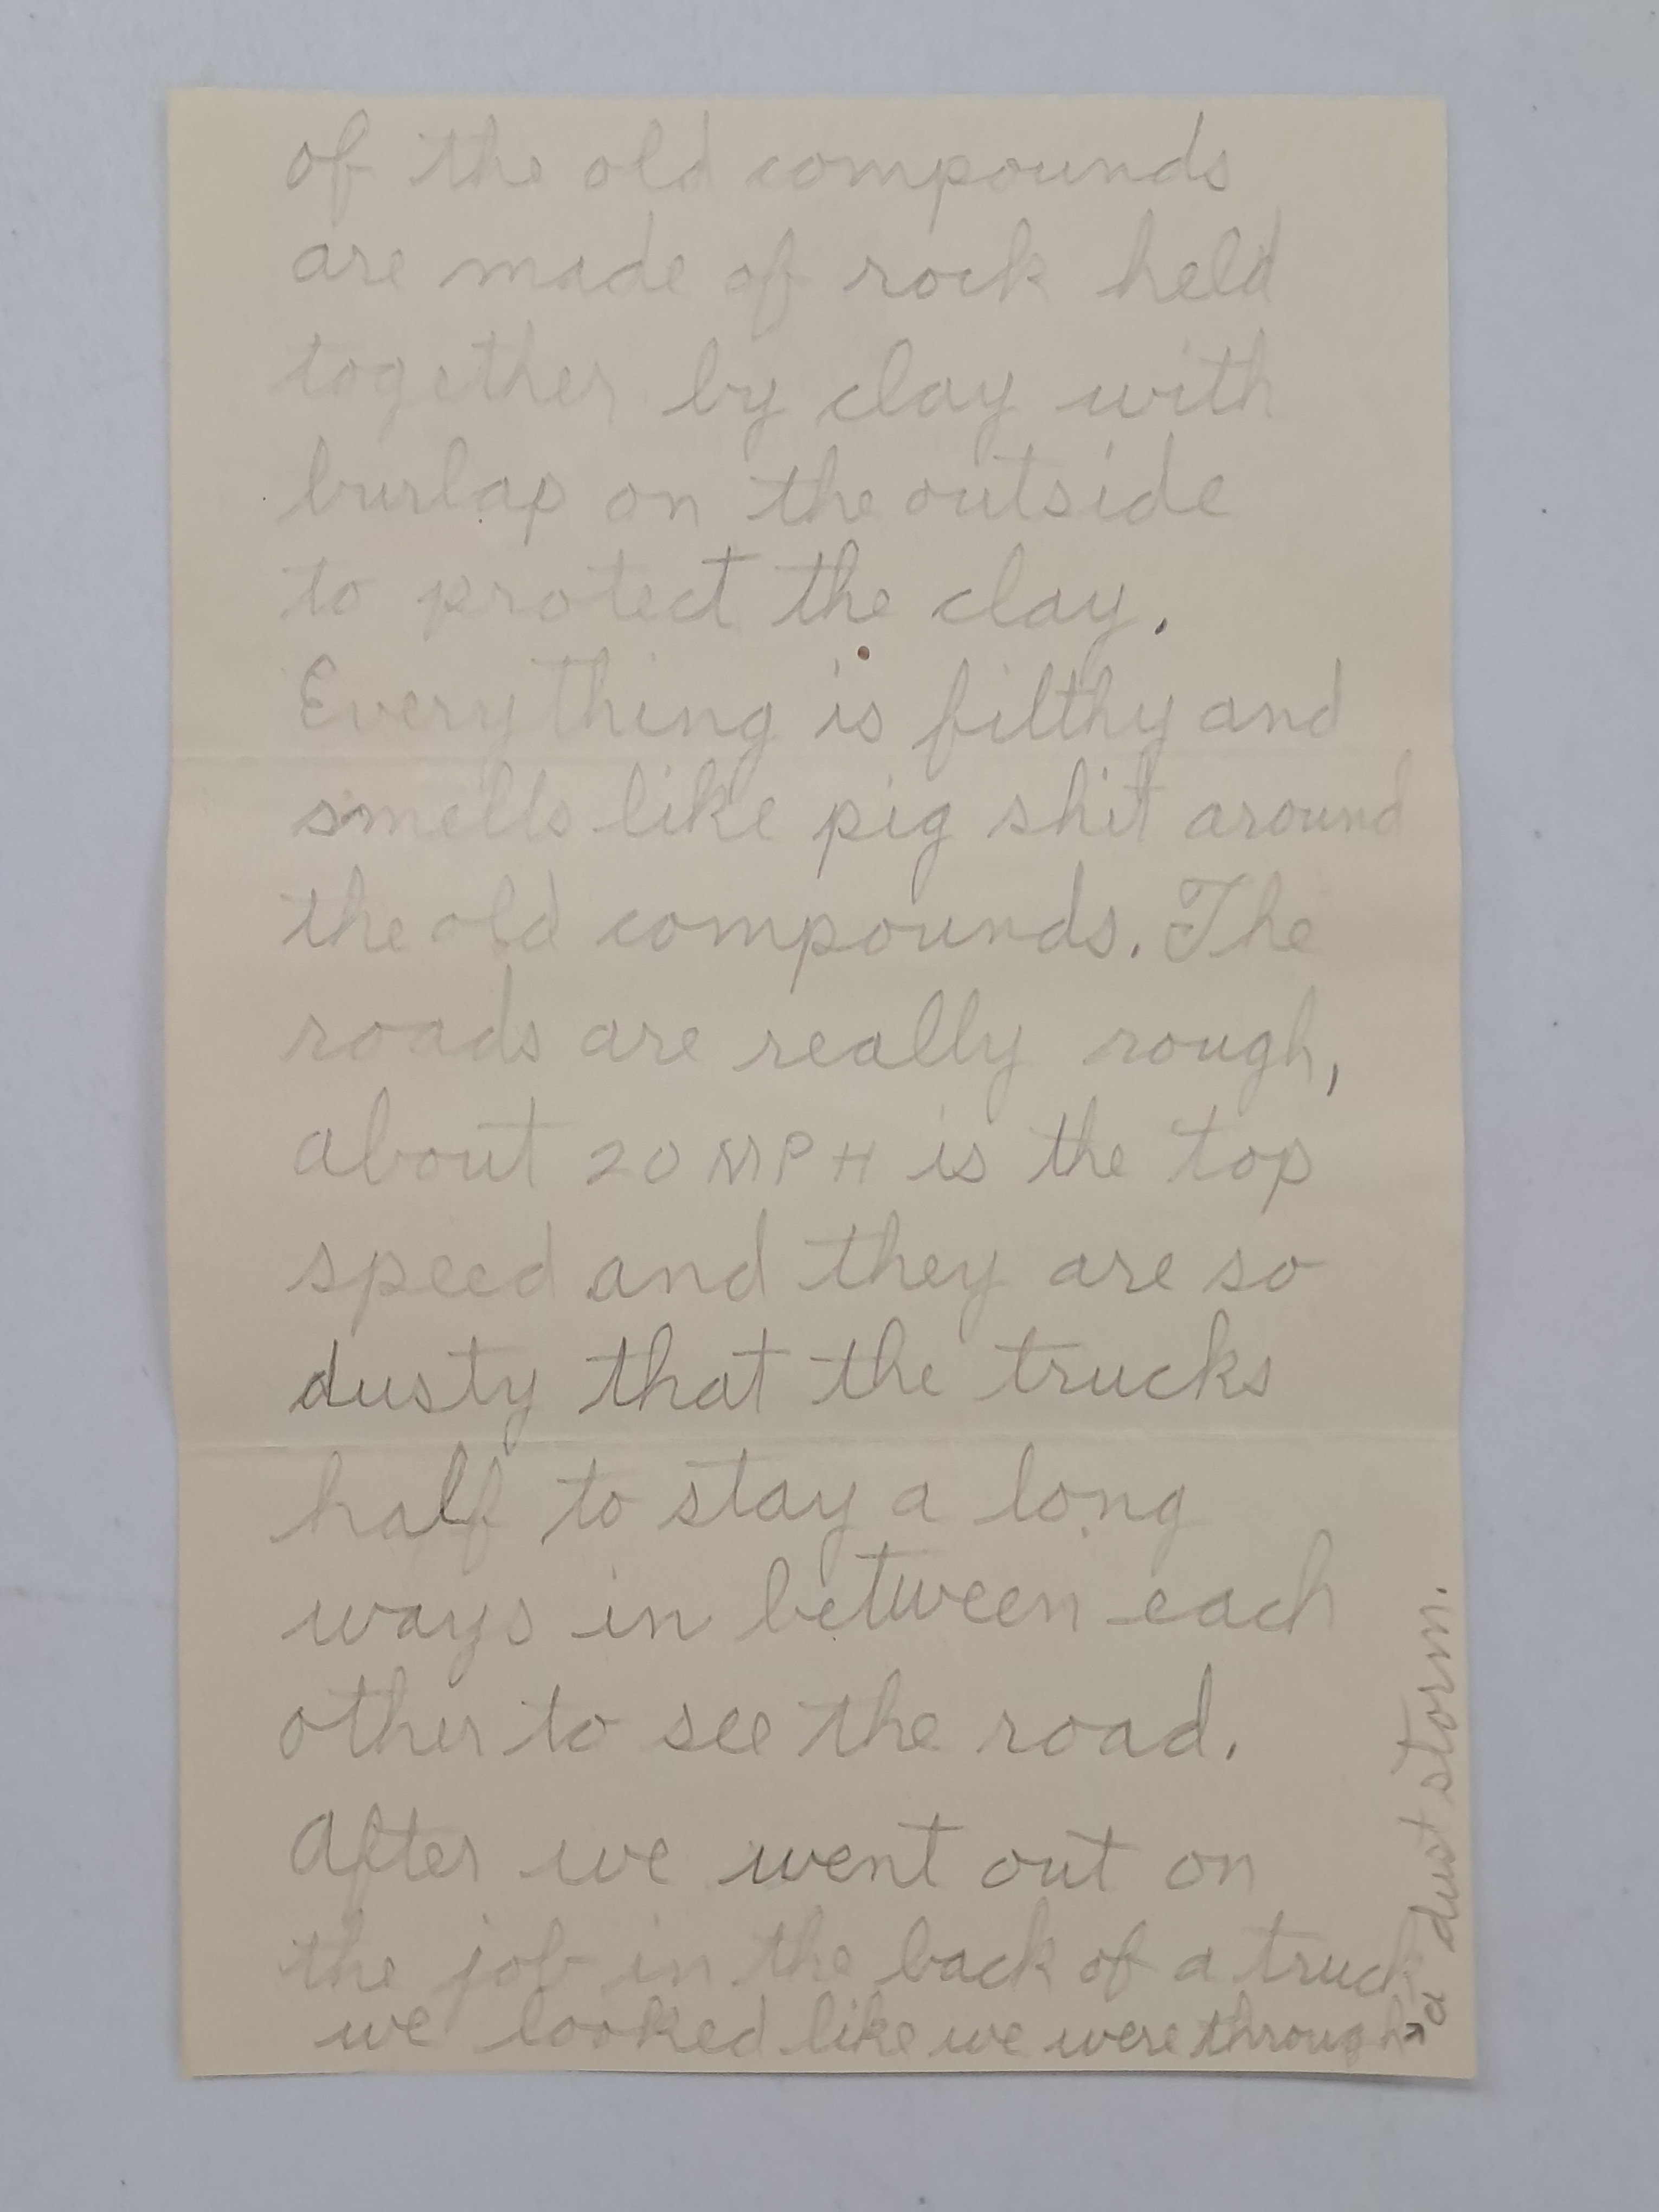 of the old compounds
are made of rock held
together by clay with
burlap on the outside
to protect the clay.
Everything is filthy and
smells like pig shit around
the old compounds. The
roads are really rough,
about 20 MPH is the top
speed and they are so
dusty that the trucks
half to stay a long
ways in between each
other to see the road.
After we went out on
the job in the back of a truck
we looked like we were through
a dust storm.